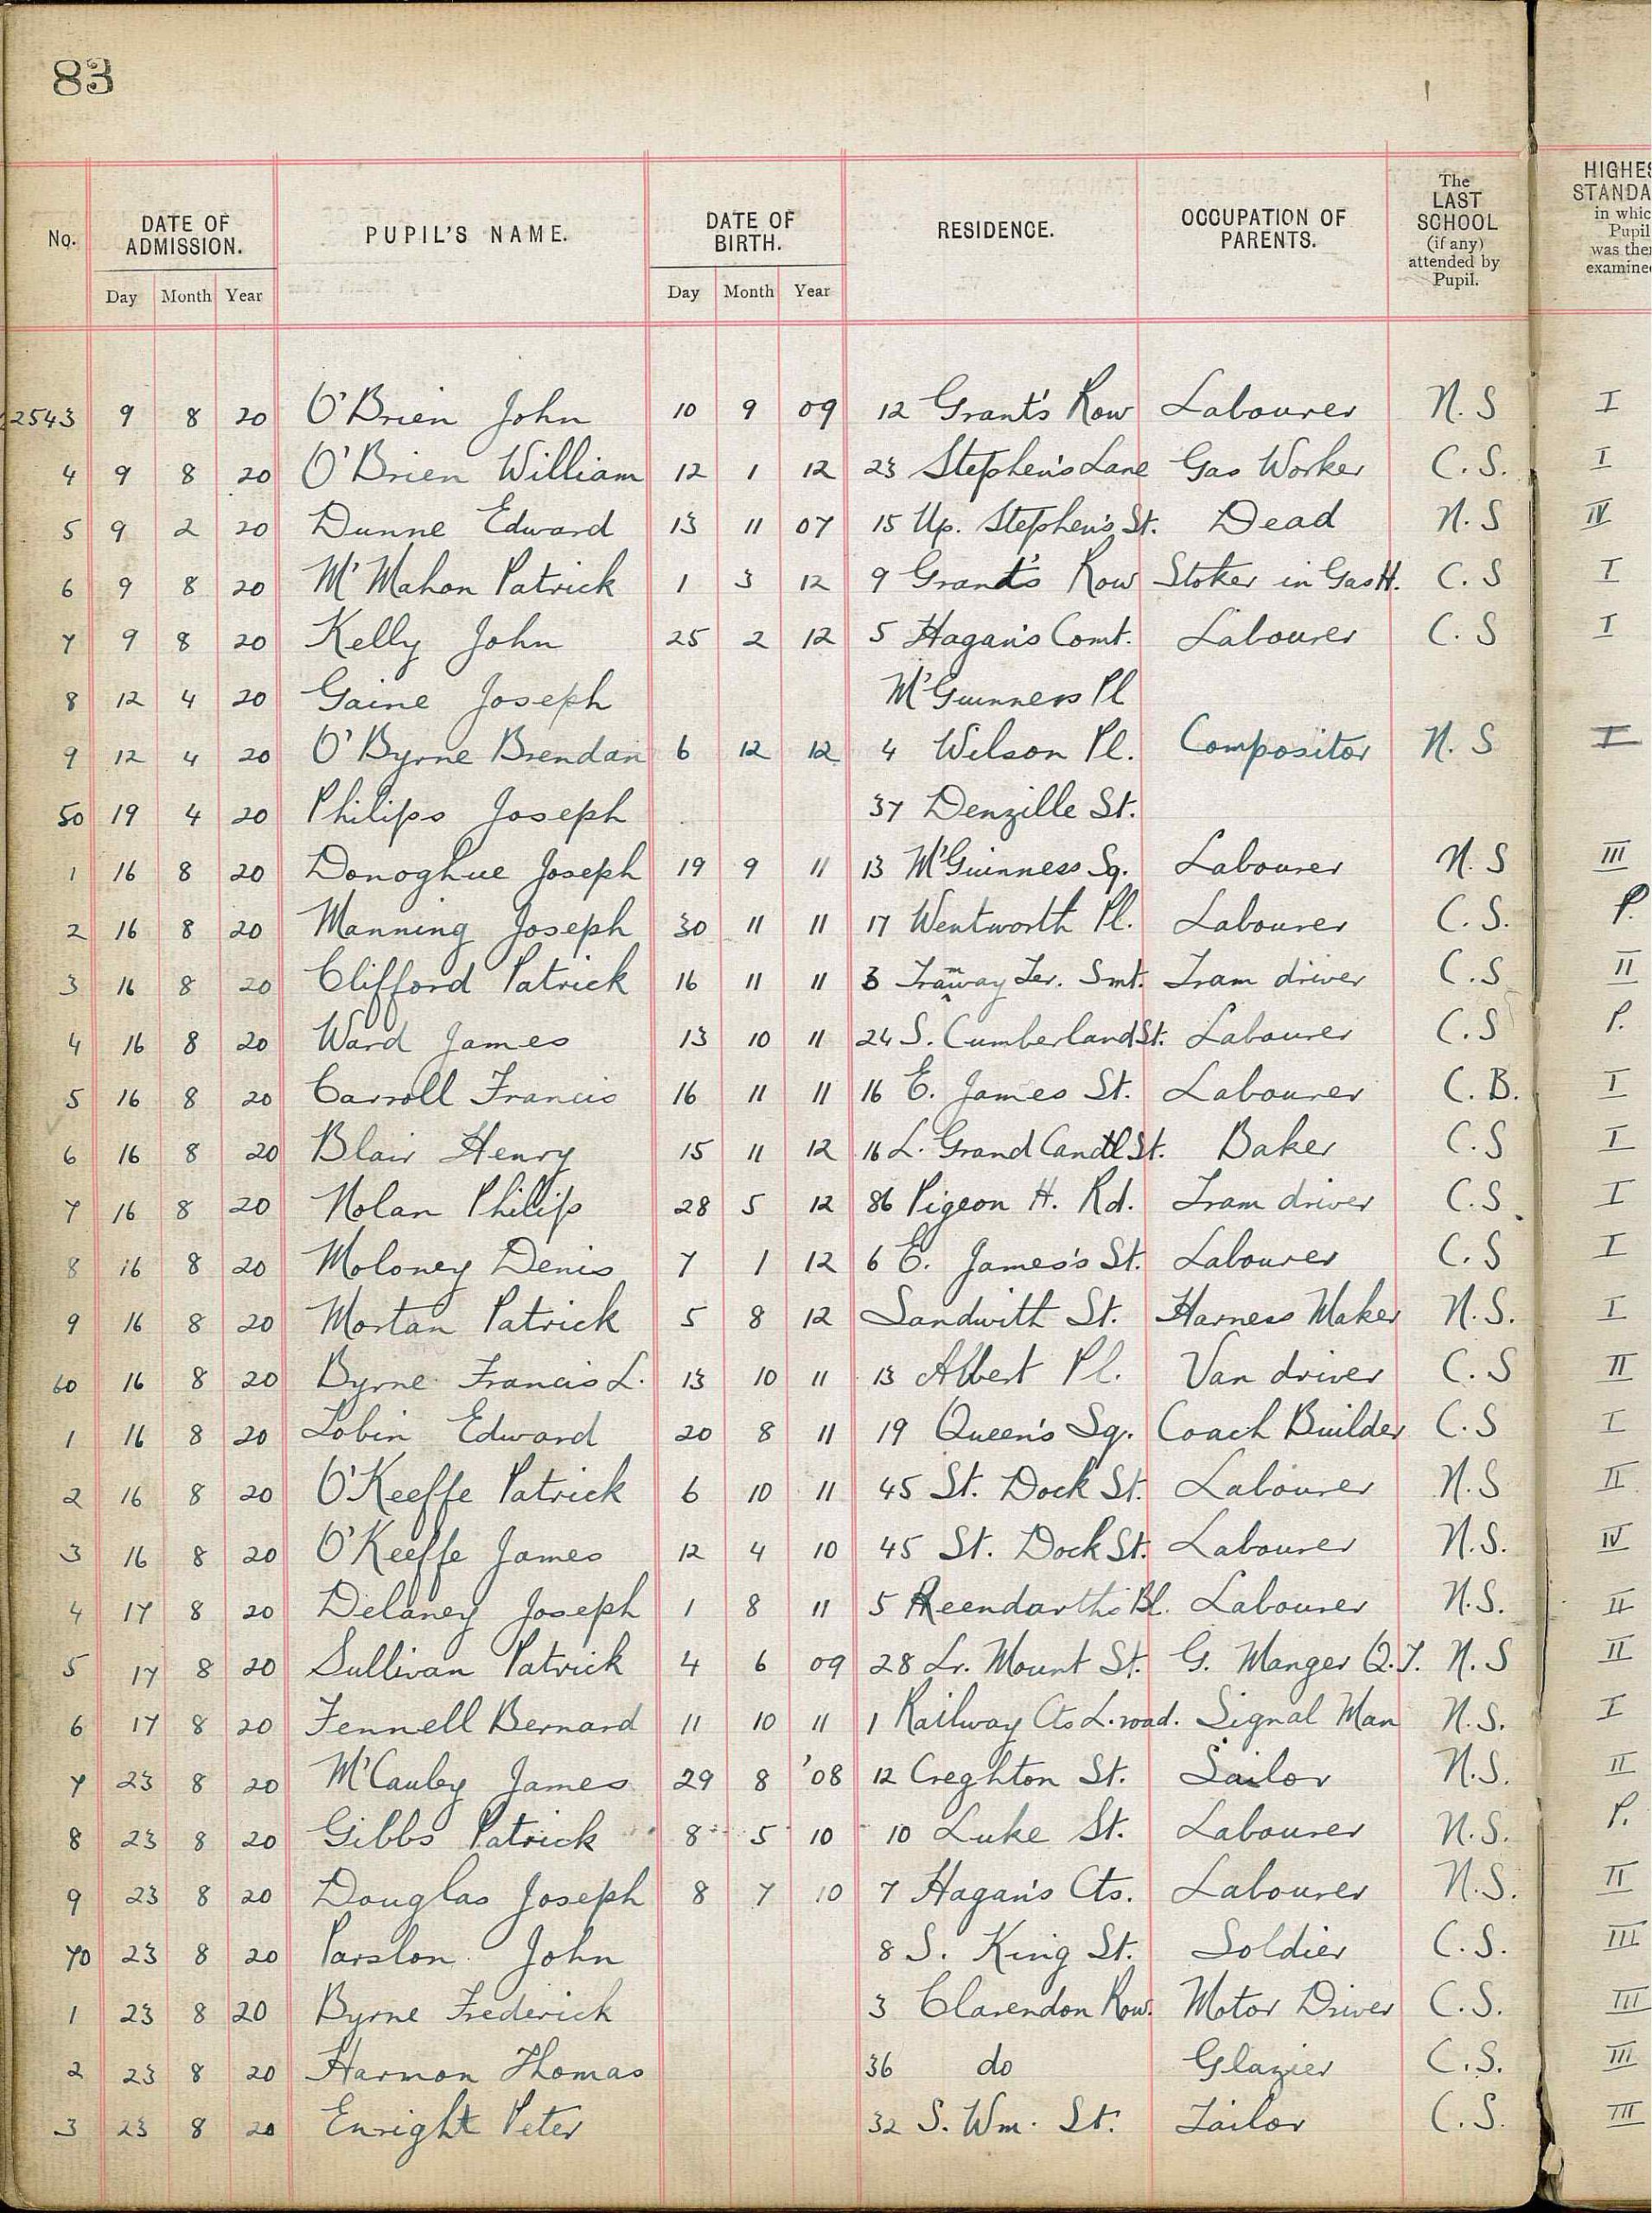 83
No. DATE OF ADMISSION. PUPIL'S NAME. DATE OF BIRTH. RESIDENCE. OCCUPATION OF PARENTS. The LAST SCHOOL (if any) attended by Pupil. HIGHES STANDA in whic Pupil was the examine
Day Month Year Day Month Year
2543 9 8 20 O'Brien John 10 9 09 12 Grant's Row Labourer N. S I
4 9 8 20 O'Brien William 12 1 12 23 Stephen's Lane Gas Worker C. S. I
5 9 2 20 Dunne Edward 13 11 07 15 Up. Stephen's St. Dead N. S IV
6 9 8 20 M'Mahon Patrick 1 3 12 9 Grant's Row Stoker in Gas H. C. S I
7 9 8 20 Kelly John 25 2 12 5 Hagan's Comt. Labourer C. S I
8 12 4 20 Gaine Joseph M'Guinness Pl
9 12 4 20 O'Byrne Brendan 6 12 12 4 Wilson Pl. Compositor N. S I
50 19 4 20 Philips Joseph 37 Denzille St.
1 16 8 20 Donoghue Joseph 19 9 11 13 M'Guinness Sq. Labourer N. S III
2 16 8 20 Manning Joseph 30 11 11 17 Wentworth Pl. Labourer C. S. P.
3 16 8 20 Clifford Patrick 16 11 11 3 Tramway Ter. Smt. Tram driver C. S II
4 16 8 20 Ward James 13 10 11 24 S. Cumberland St. Labourer C. S P.
5 16 8 20 Carroll Francis 16 11 11 16 E. James St. Labourer C. B. I
6 16 8 20 Blair Henry 15 11 12 16 L. Grand Canal St. Baker C. S I
7 16 8 20 Nolan Philip 28 5 12 86 Pigeon H. Rd. Tram driver C. S I
8 16 8 20 Moloney Denis 7 1 12 6 E. James's St. Labourer C. S I
9 16 8 20 Mortan Patrick 5 8 12 Sandwith St. Harness Maker N. S. I
60 16 8 20 Byrne Francis L. 13 10 11 13 Albert Pl. Van driver C. S II
1 16 8 20 Tobin Edward 20 8 11 19 Queen's Sq. Coach Builder C. S I
2 16 8 20 O'Keeffe Patrick 6 10 11 45 St. Dock St. Labourer N. S II
3 16 8 20 O'Keeffe James 12 4 10 45 St. Dock St. Labourer N. S. IV
4 17 8 20 Delaney Joseph 1 8 11 5 Labourer N. S. II
5 17 8 20 Sullivan Patrick 4 6 09 28 Lr. Mount St. G. Manger Q. T. N. S II
6 17 8 20 Fennell Bernard 11 10 11 1 Railway Cts L. road. Signal Man N. S. I
7 23 8 20 M'Cauley James 29 8 '08 12 Creghton St. Sailor N. S. II
8 23 8 20 Gibbs Patrick 8 5 10 10 Luke St. Labourer N. S. P.
9 23 8 20 Douglas Joseph 8 7 10 7 Hagan's Cts. Labourer N. S. II
70 23 8 20 Parslon John 8 S. King St. Soldier C. S. III
1 23 8 20 Byrne Frederick 3 Clarendon Row. Motor Driver C. S. III
2 23 8 20 Harmon Thomas 36 do Glazier C. S. III
3 23 8 20 Enright Peter 32 S. Wm. St. Tailor C. S. III